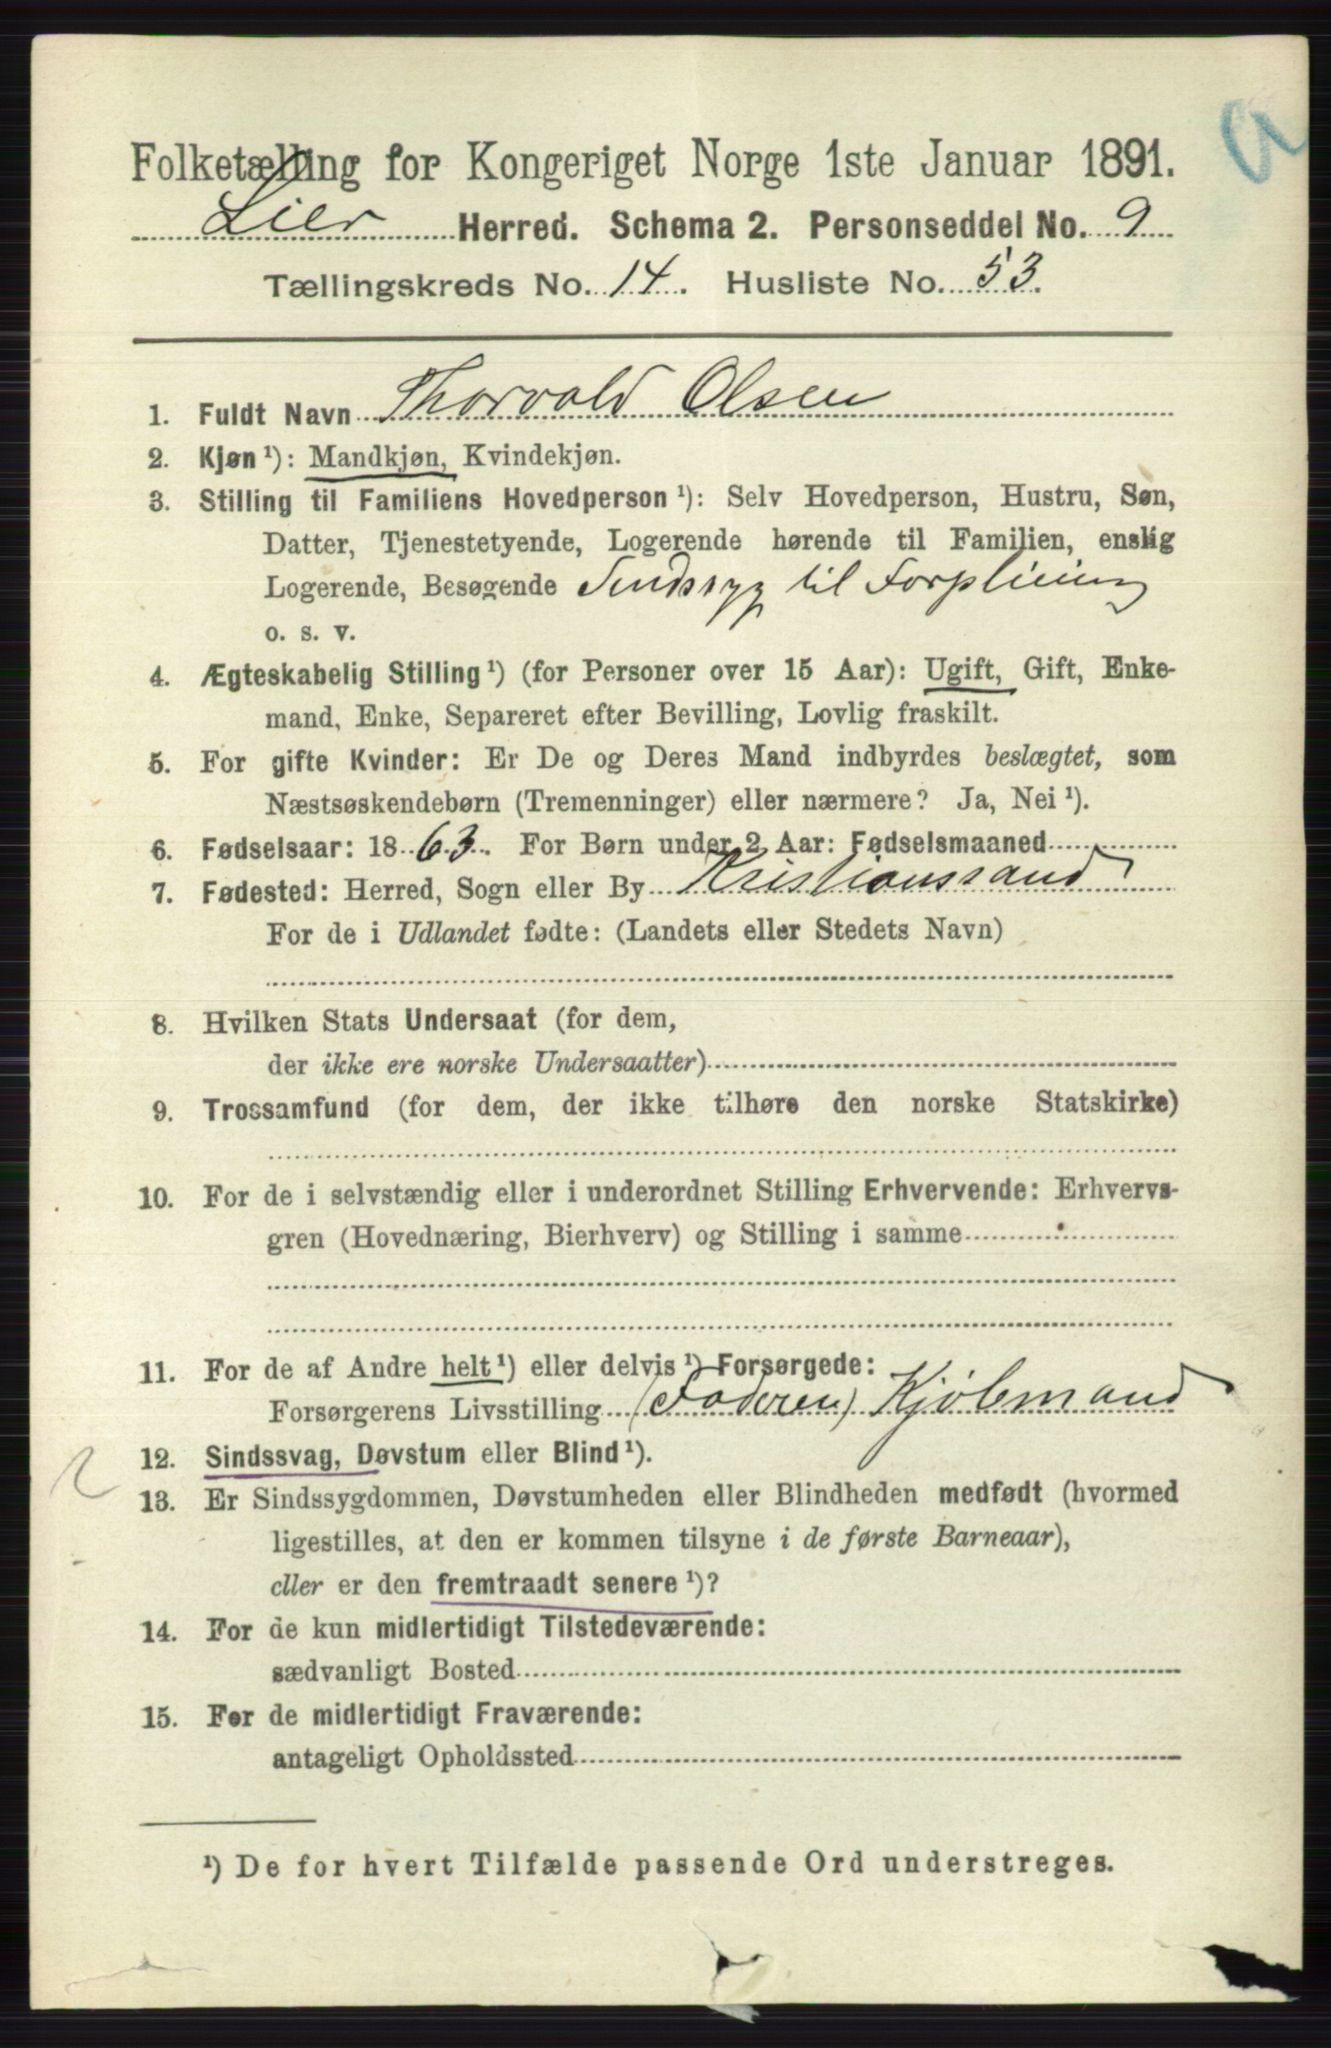 Folketælling for Kongeriget Norge 1ste Januar 1891.
Lier Herred. Schema 2. Personseddel No. 9
Tællingskreds No. 14. Husliste No. 53.
1. Fuldt Navn Thorvald Olsen
2. Kjøn ¹): Mandkjøn, Kvindekjøn.
3. Stilling til Familiens Hovedperson ¹): Selv Hovedperson, Hustru, Søn,
Datter, Tjenestetyende, Logerende hørende til Familien, enslig
Logerende, Besøgende Sindssyg til Forpleining
o. s. v.
4. Ægteskabelig Stilling ¹) (for Personer over 15 Aar): Ugift, Gift, Enke-
mand, Enke, Separeret efter Bevilling, Lovlig fraskilt.
5. For gifte Kvinder: Er De og Deres Mand indbyrdes beslægtet, som
Næstsøskendebørn (Tremenninger) eller nærmere? Ja, Nei ¹).
6. Fødselsaar: 1863. For Børn under 2 Aar: Fødselsmaaned
7. Fødested: Herred, Sogn eller By Kristianssand
For de i Udlandet fødte: (Landets eller Stedets Navn)
8. Hvilken Stats Undersaat (for dem,
der ikke ere norske Undersaatter)
9. Trossamfund (for dem, der ikke tilhøre den norske Statskirke)
10. For de i selvstændig eller i underordnet Stilling Erhvervende: Erhvervs-
gren (Hovednæring, Bierhverv) og Stilling i samme
11. For de af Andre helt ¹) eller delvis ¹) Forsørgede:
Forsørgerens Livsstilling (Faderen) Kjøbmand
12. Sindssvag, Døvstum eller Blind ¹).
13. Er Sindssygdommen, Døvstumheden eller Blindheden medfødt (hvormed
ligestilles, at den er kommen tilsyne i de første Barneaar),
eller er den fremtraadt senere ¹)?
14. For de kun midlertidigt Tilstedeværende:
sædvanligt Bosted
15. For de midlertidigt Fraværende:
antageligt Opholdssted
¹) De for hvert Tilfælde passende Ord understreges.